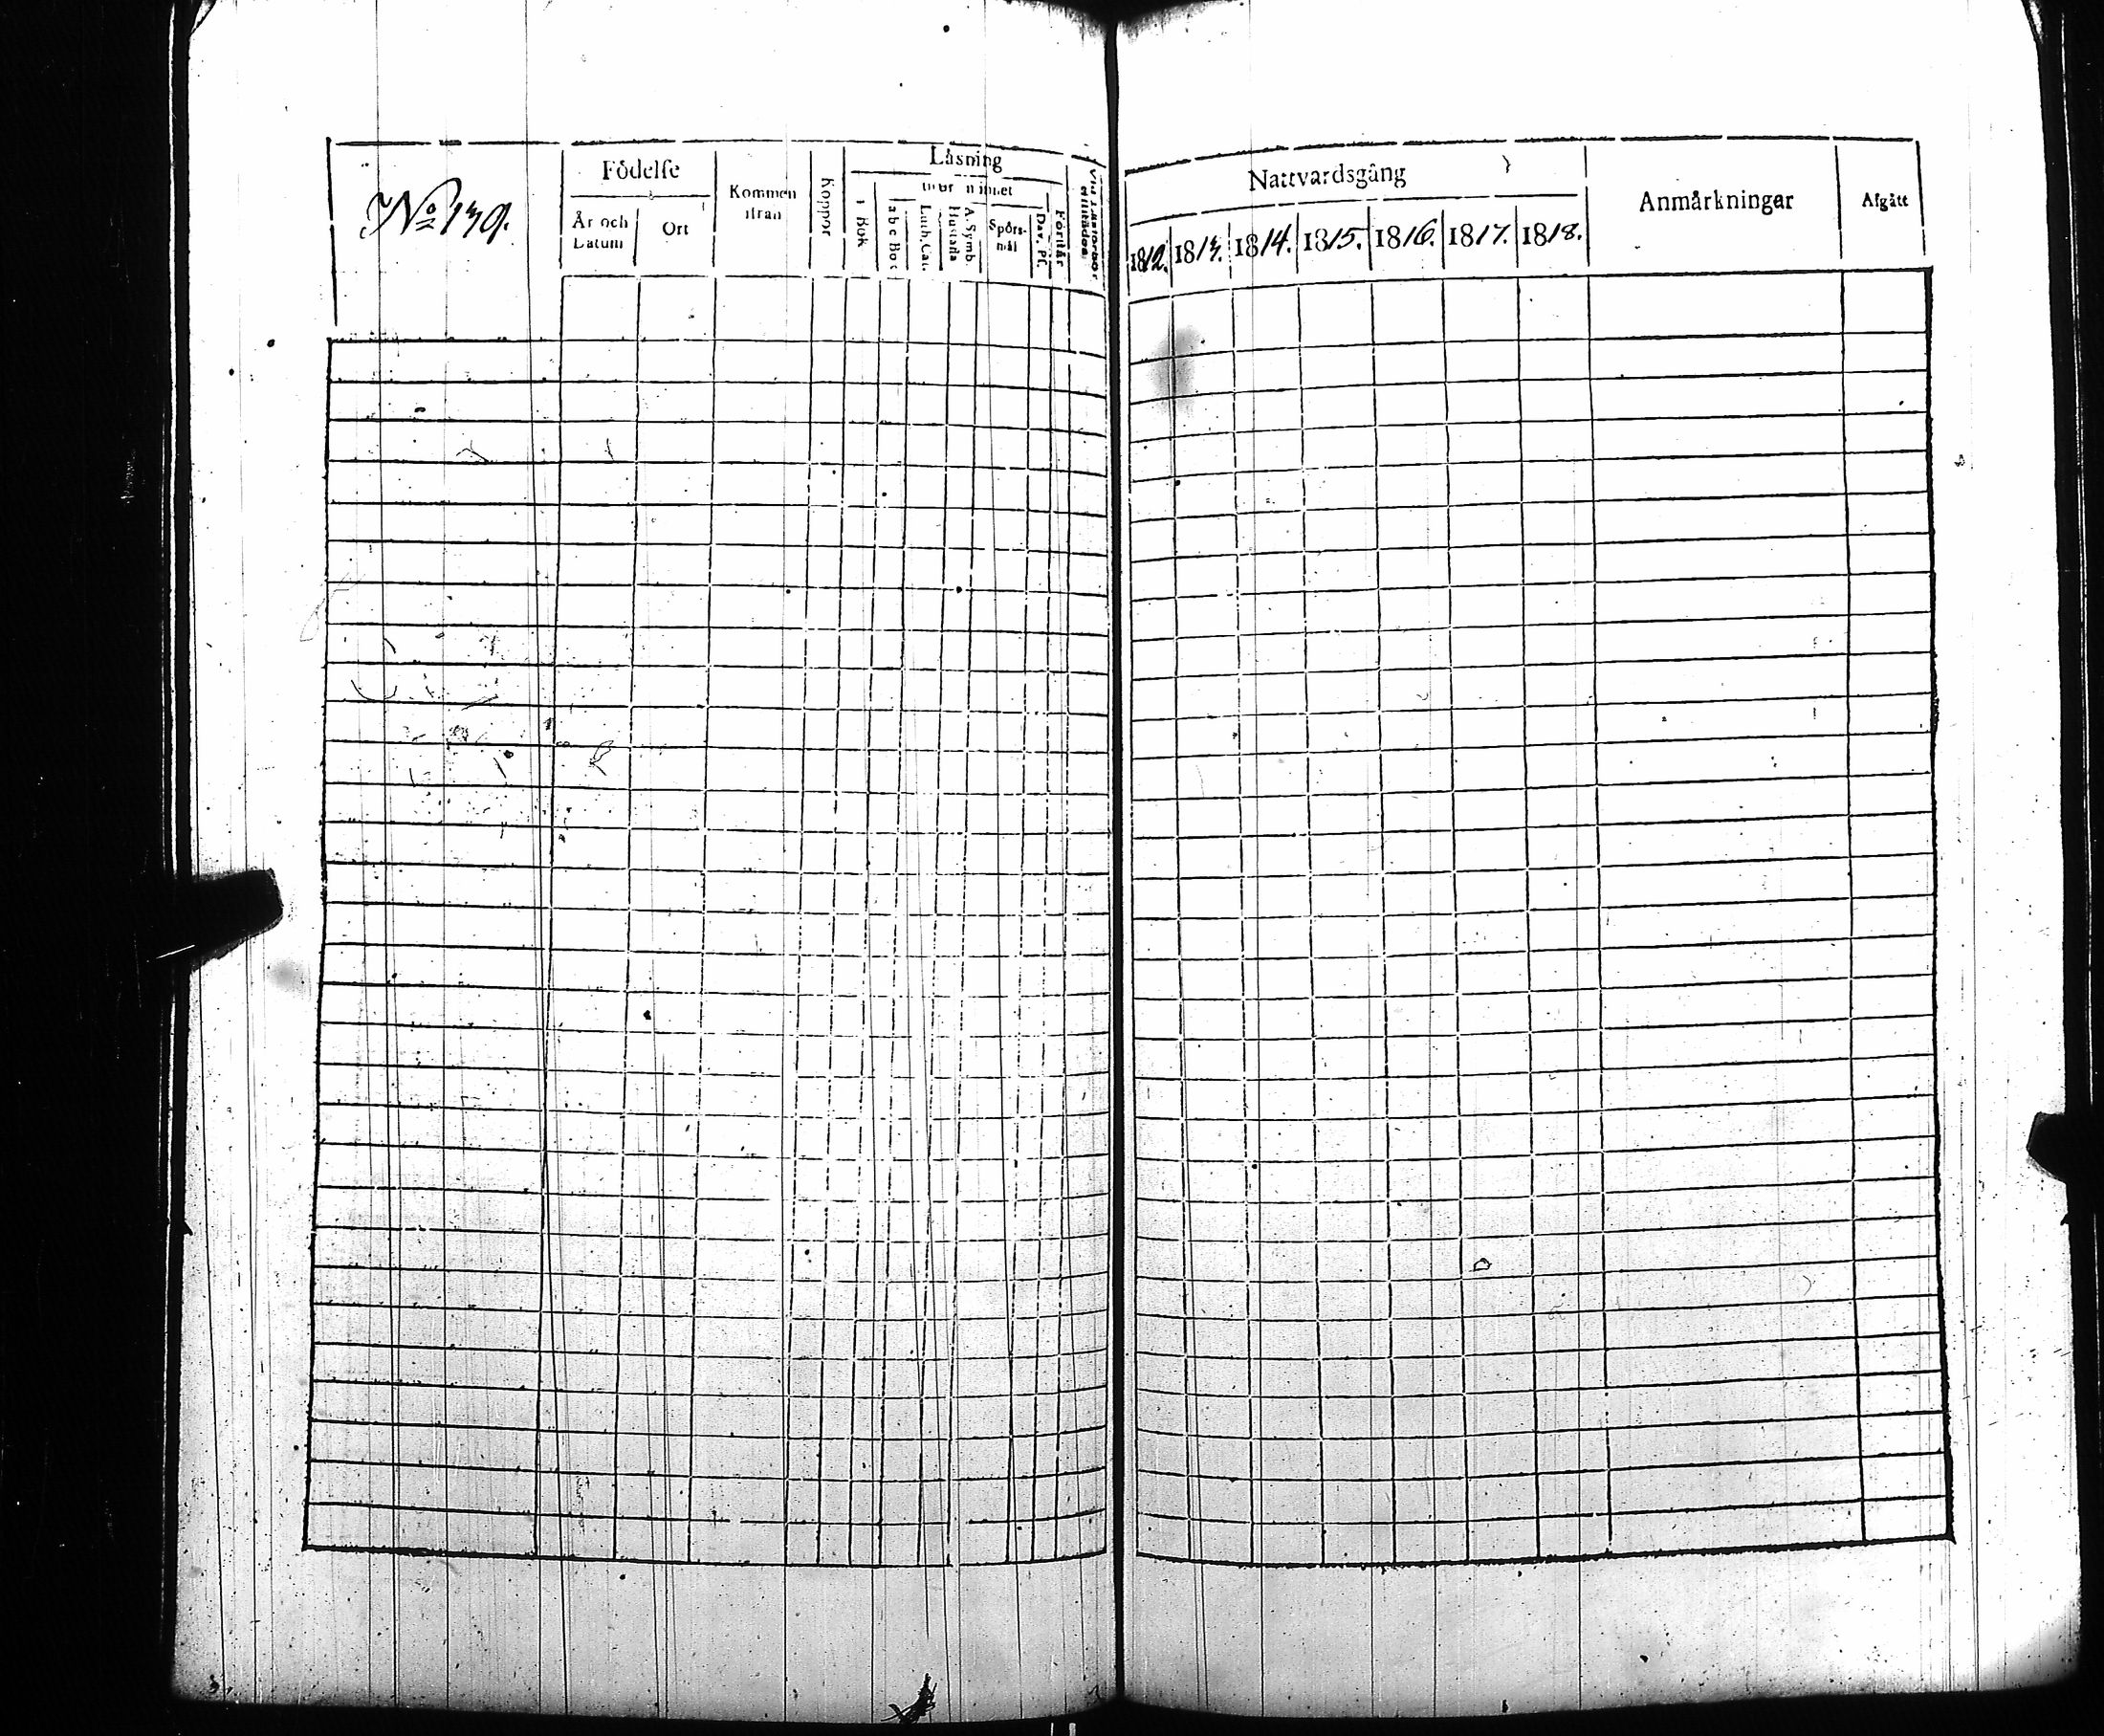 No 139.
Födelse
År och Datum
Ort
Kommen ifrån
Koppor
Läsning
i Bok
utur minnet
a b c Bok
Luth. Cat.
Hustafla
A. Symb.
Spörs-mål
Dav. Ps.
Förstår
Nattvardsgång
1812.
1813.
1814.
1815.
1816.
1817.
1818.
Anmärkningar
Afgått